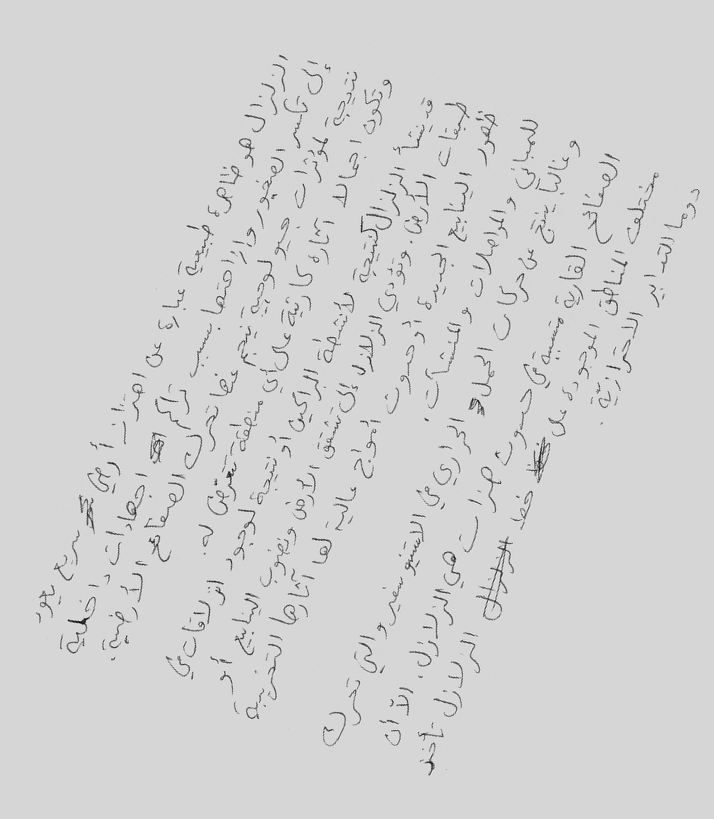 الزلزال هو ظاهرة طبيعية عبارة عن اهتزاز أرضي سريع يعود
إلى تكسر الصخور وإزاحتها بسبب تراكم اجهادات داخلية
نتيجة لمؤثرات جيولوجية ينجم عنها تحرك الصفائح الأرضية.
وتكون اجمالا آثاره كارثية على أي منطقة تتعرض له.
قد ينشأ الزلزال كنتيجة لأنشطة البراكين أو نتيجة لوجود انزلاقات في
طبقات الأرض. وتؤدي الزلازل إلى تشقق الأرض ونضوب الينابيع أو
ظهور الينابيع الجديدة أو حدوث أمواج عالية لها آثارها التخريبية
للمباني والمواصلات والمنشآت.
وغالبا ينتج عن حركات الحمل الحراري في الاستينوسفير والتي تحرك
الصفائح القارية متسببة في حدوث هزات هي الزلازل. الا أن
مختلف المناطق الموجودة على خط الزلازل تأخذ
دوما التدابير الاحترازية.